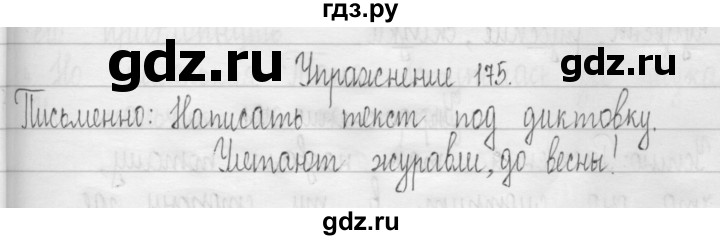 гдз.ру
gdz.ru
gdz.ru
Упражнение 175.
Письменно: Написать текст под диктовку.
Улетают журавли, до весны!
gdz.ru